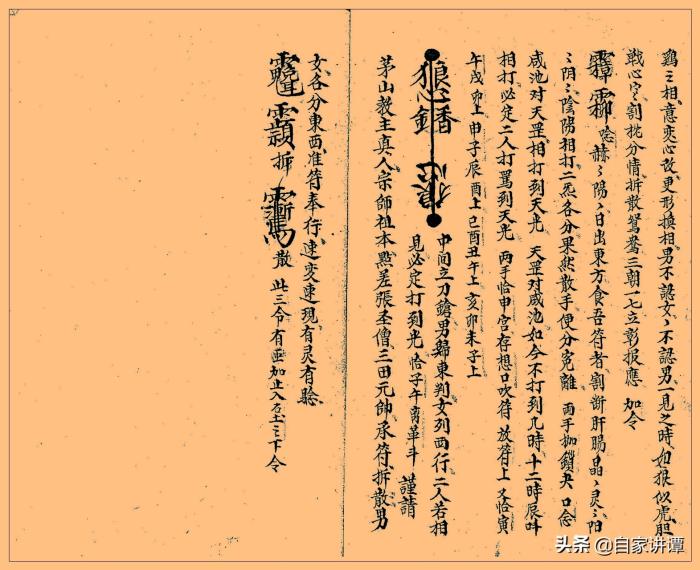 鷄〻相意变心改更形换相男不認女〻不認男一見之時如狼似虎胆
戦心寒割枕分情拆散鴛鴦三朝一七立彰报應 如令
唸赫〻陽〻日出東方食吾符者割断肝腸晶〻灵〻阳
〻阴〻陰陽相打二炁各分果然散手便分寃離 兩手枷鎖决口念
咸池对天罡相打到天光 天罡对咸池如今不打到几時十二時辰
相打必定二人打罵到天光 两手恰申宫存想口吹符 放符上 又恰寅
午戌卯上申子辰酉上巳酉丑午上亥卯未子上
狼心
香
中间立刀鎗男歸東判女列西行二人若相
見必定打到光 恰子午离革斗 謹請
茅山教主真人宗師祖本點差張圣僧三田元帥承符拆散男
女各分東西准符奉行速变速現有灵有驗
拆
散 此三令有 加止入 下令
头条 @自家讲谭